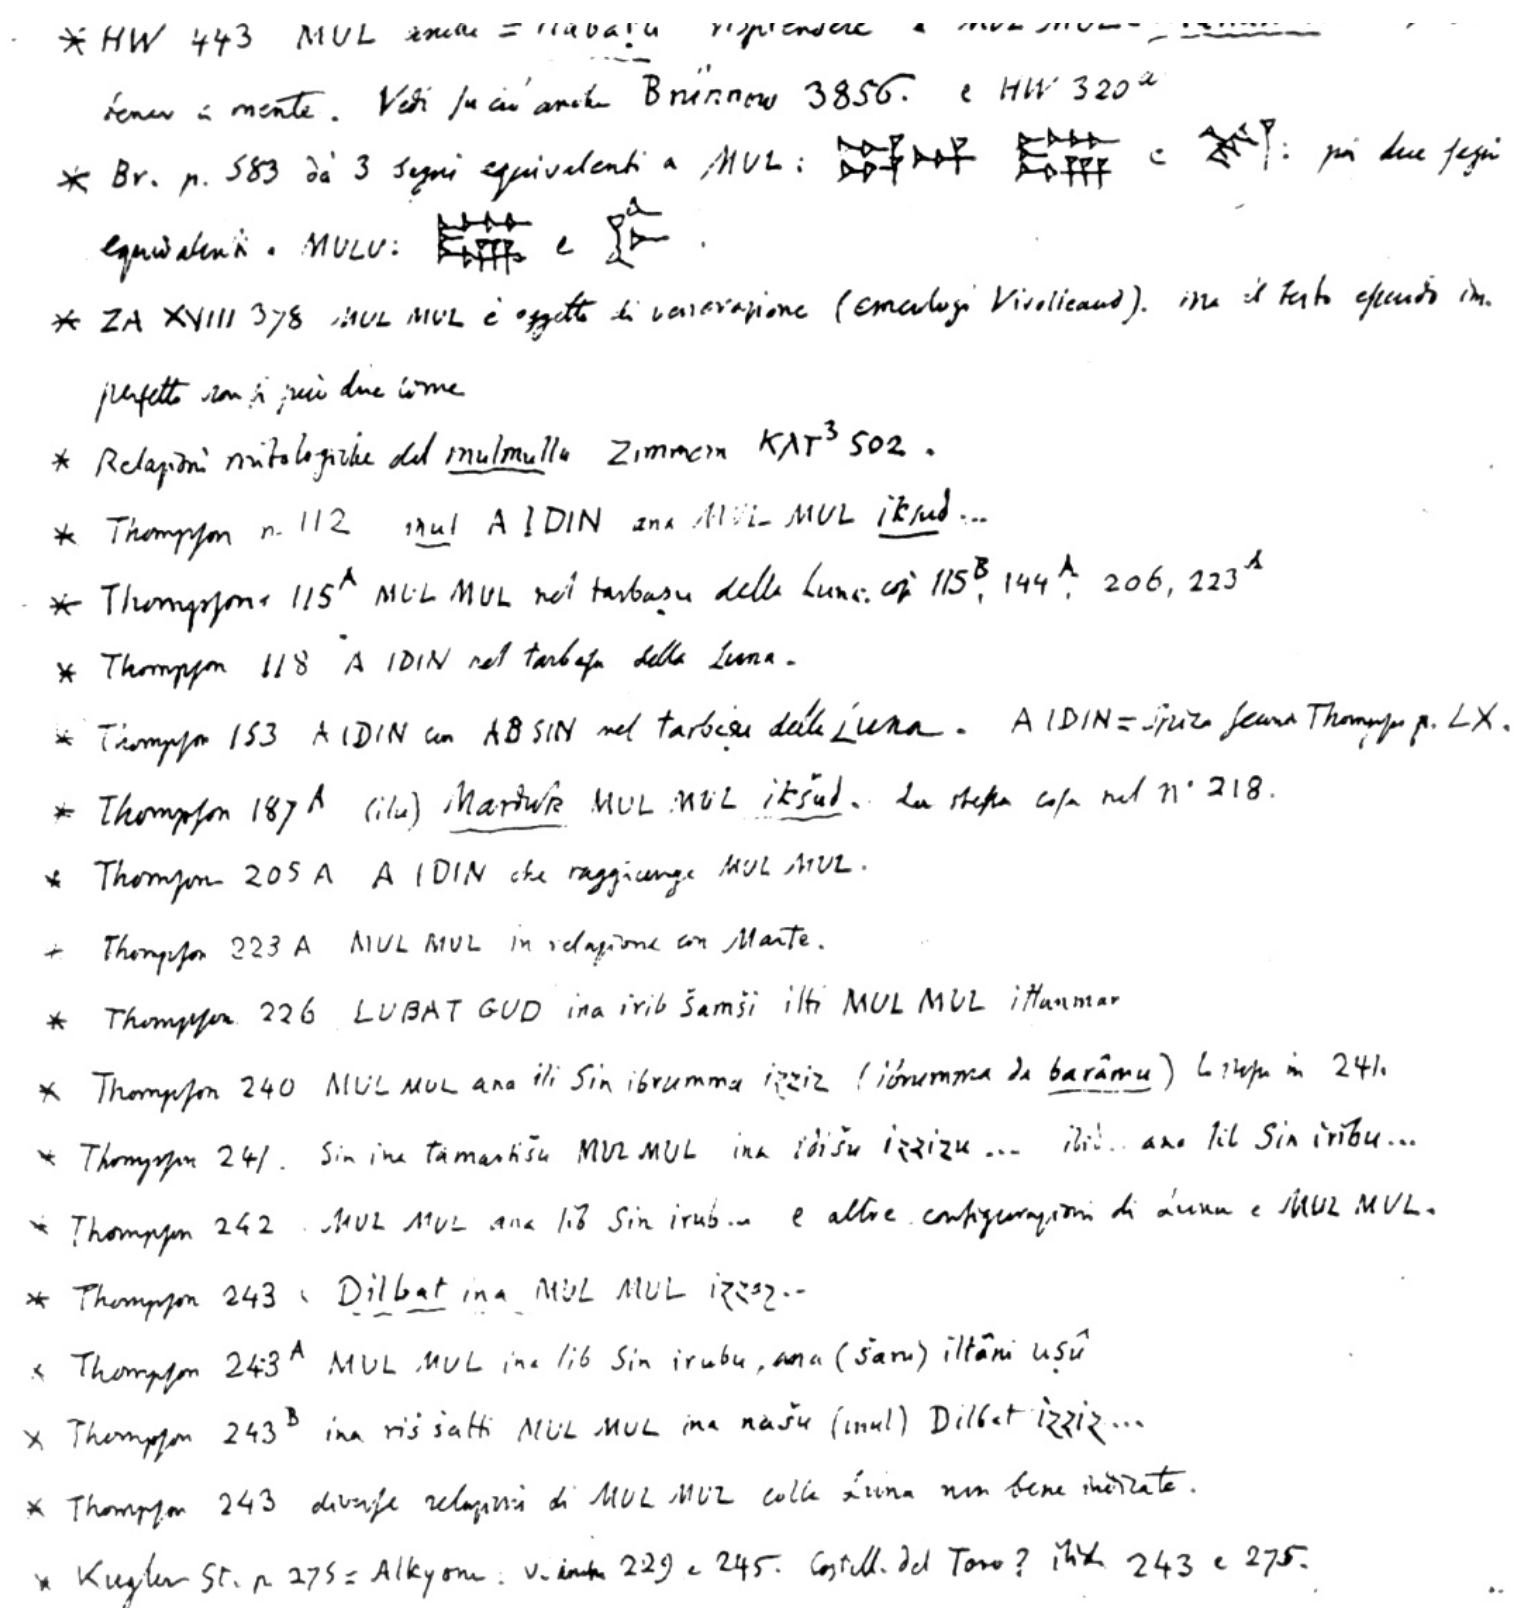 * HW 443 MUL anche = nabaṭu risplendere e MUL MUL =
tener a mente. Vedi su ciò anche Brünnow 3856. e HW 320ᵃ
* Br. p. 583 dà 3 segni equivalenti a MUL: e : poi due segni
equivalenti a MULU: e .
* ZA XVIII 378 MUL MUL è oggetto di venerazione (emerologi Virolleaud). ma il testo essendo im-
perfetto non si può dire come
* Relazioni mitologiche del mulmulla Zimmern KAT³ 502.
* Thompson n. 112 mul A IDIN ana MUL MUL ikšud...
* Thompson 115ᴬ MUL MUL nel tarbaṣu della Luna. così 115ᴮ, 144ᴬ, 206, 223ᴬ
* Thompson 118 A IDIN nel tarbaṣu della Luna.
* Thompson 153 A IDIN con AB SIN nel tarbaṣu della Luna. A IDIN = Spica secondo Thompson p. LX.
* Thompson 187ᴬ (ilu) Marduk MUL MUL ikšud. La stessa cosa nel n° 218.
* Thompson 205 A A IDIN che raggiunge MUL MUL.
* Thompson 223 A MUL MUL in relazione con Marte.
* Thompson 226 LUBAT GUD ina irib šamši itti MUL MUL ittanmar
* Thompson 240 MUL MUL ana ili Sin ibrumma izziz (ibrumma da barâmu) Lo stesso in 241.
* Thompson 241. Sin ina tamartišu MUL MUL ina idišu izzizu ... ibid. ana lib Sin iribu...
* Thompson 242. MUL MUL ana lib Sin irub... e altre configurazioni di Luna e MUL MUL.
* Thompson 243. Dilbat ina MUL MUL izziz...
* Thompson 243ᴬ MUL MUL ina lib Sin irubu, ana (šaru) iltâni uṣû
* Thompson 243ᴮ ina riš šatti MUL MUL ina našu (mul) Dilbat izziz...
* Thompson 243 diverse relazioni di MUL MUL colla Luna non bene indicate.
* Kugler St. p. 275 = Alkyone. v. anche 229 e 245. Costell. del Toro? ibid. 243 e 275.